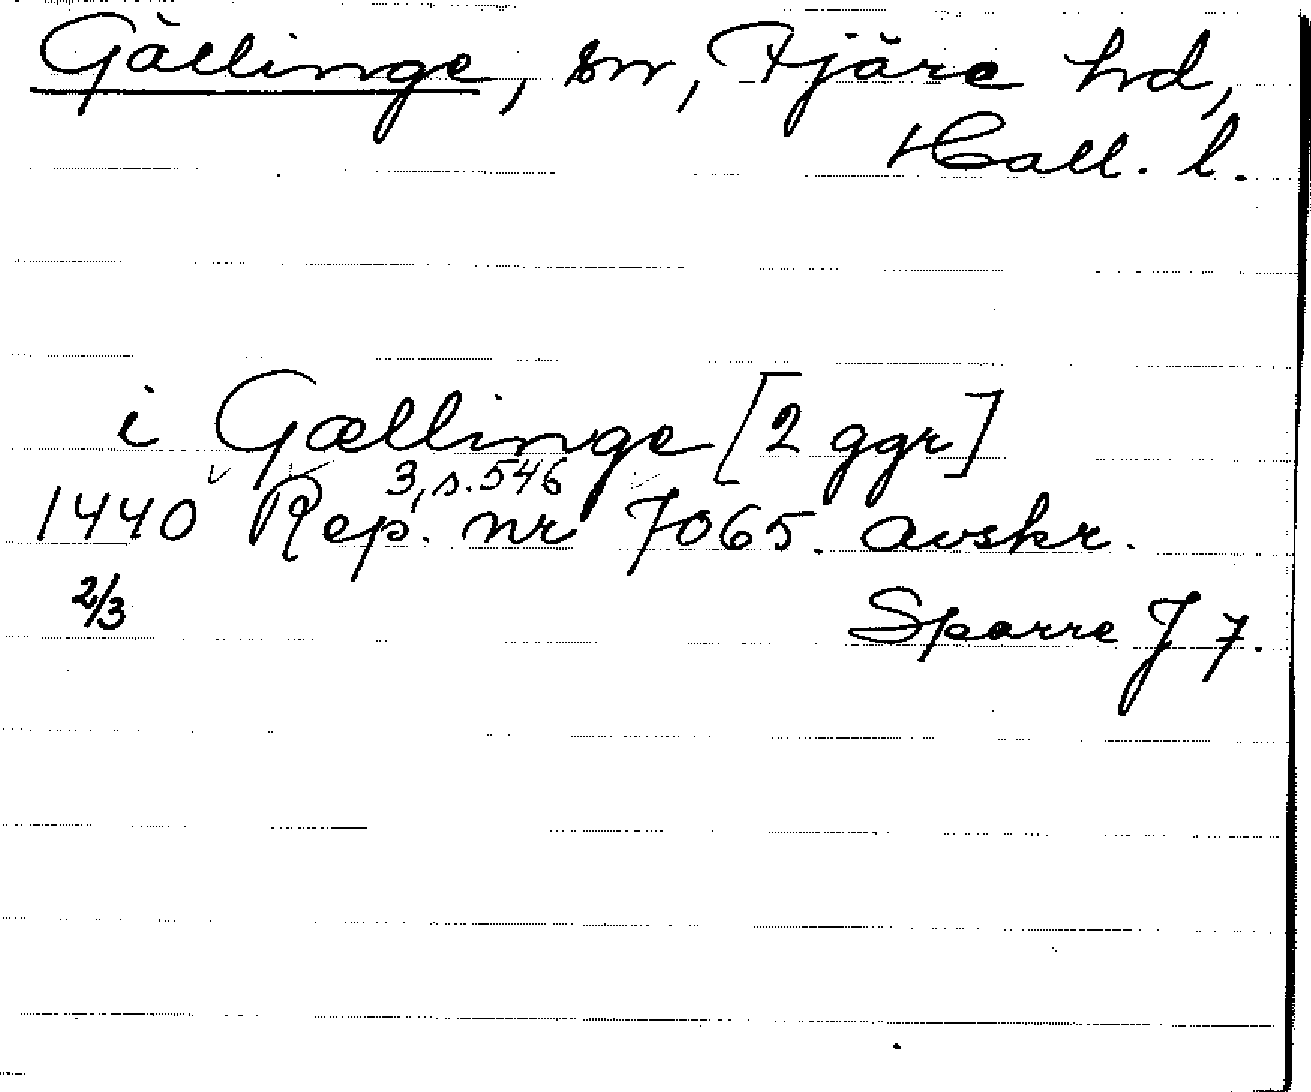 Gällinge, sn, Fjäre hd,
Hall. l.
i Gællinge [2 ggr]
3, s. 546
1440 Rep. nr 7065. avskr.
2/3 Sparre J 7.